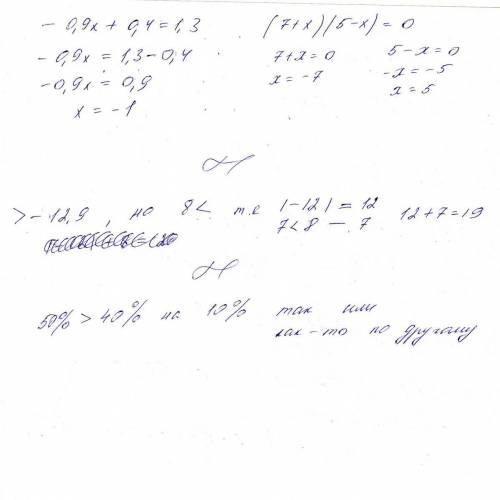 - 0,9x + 0,4 = 1,3
- 0,9x = 1,3 - 0,4
-0,9x = 0,9
x = -1
(7+x)(5-x) = 0
7+x=0 5-x=0
x = -7 -x = -5
x = 5
> - 12,9 , но 8 < т.е |-12| = 12 12+7=19
7<8 — 7
50% > 40% на 10% так или
как-то по другому